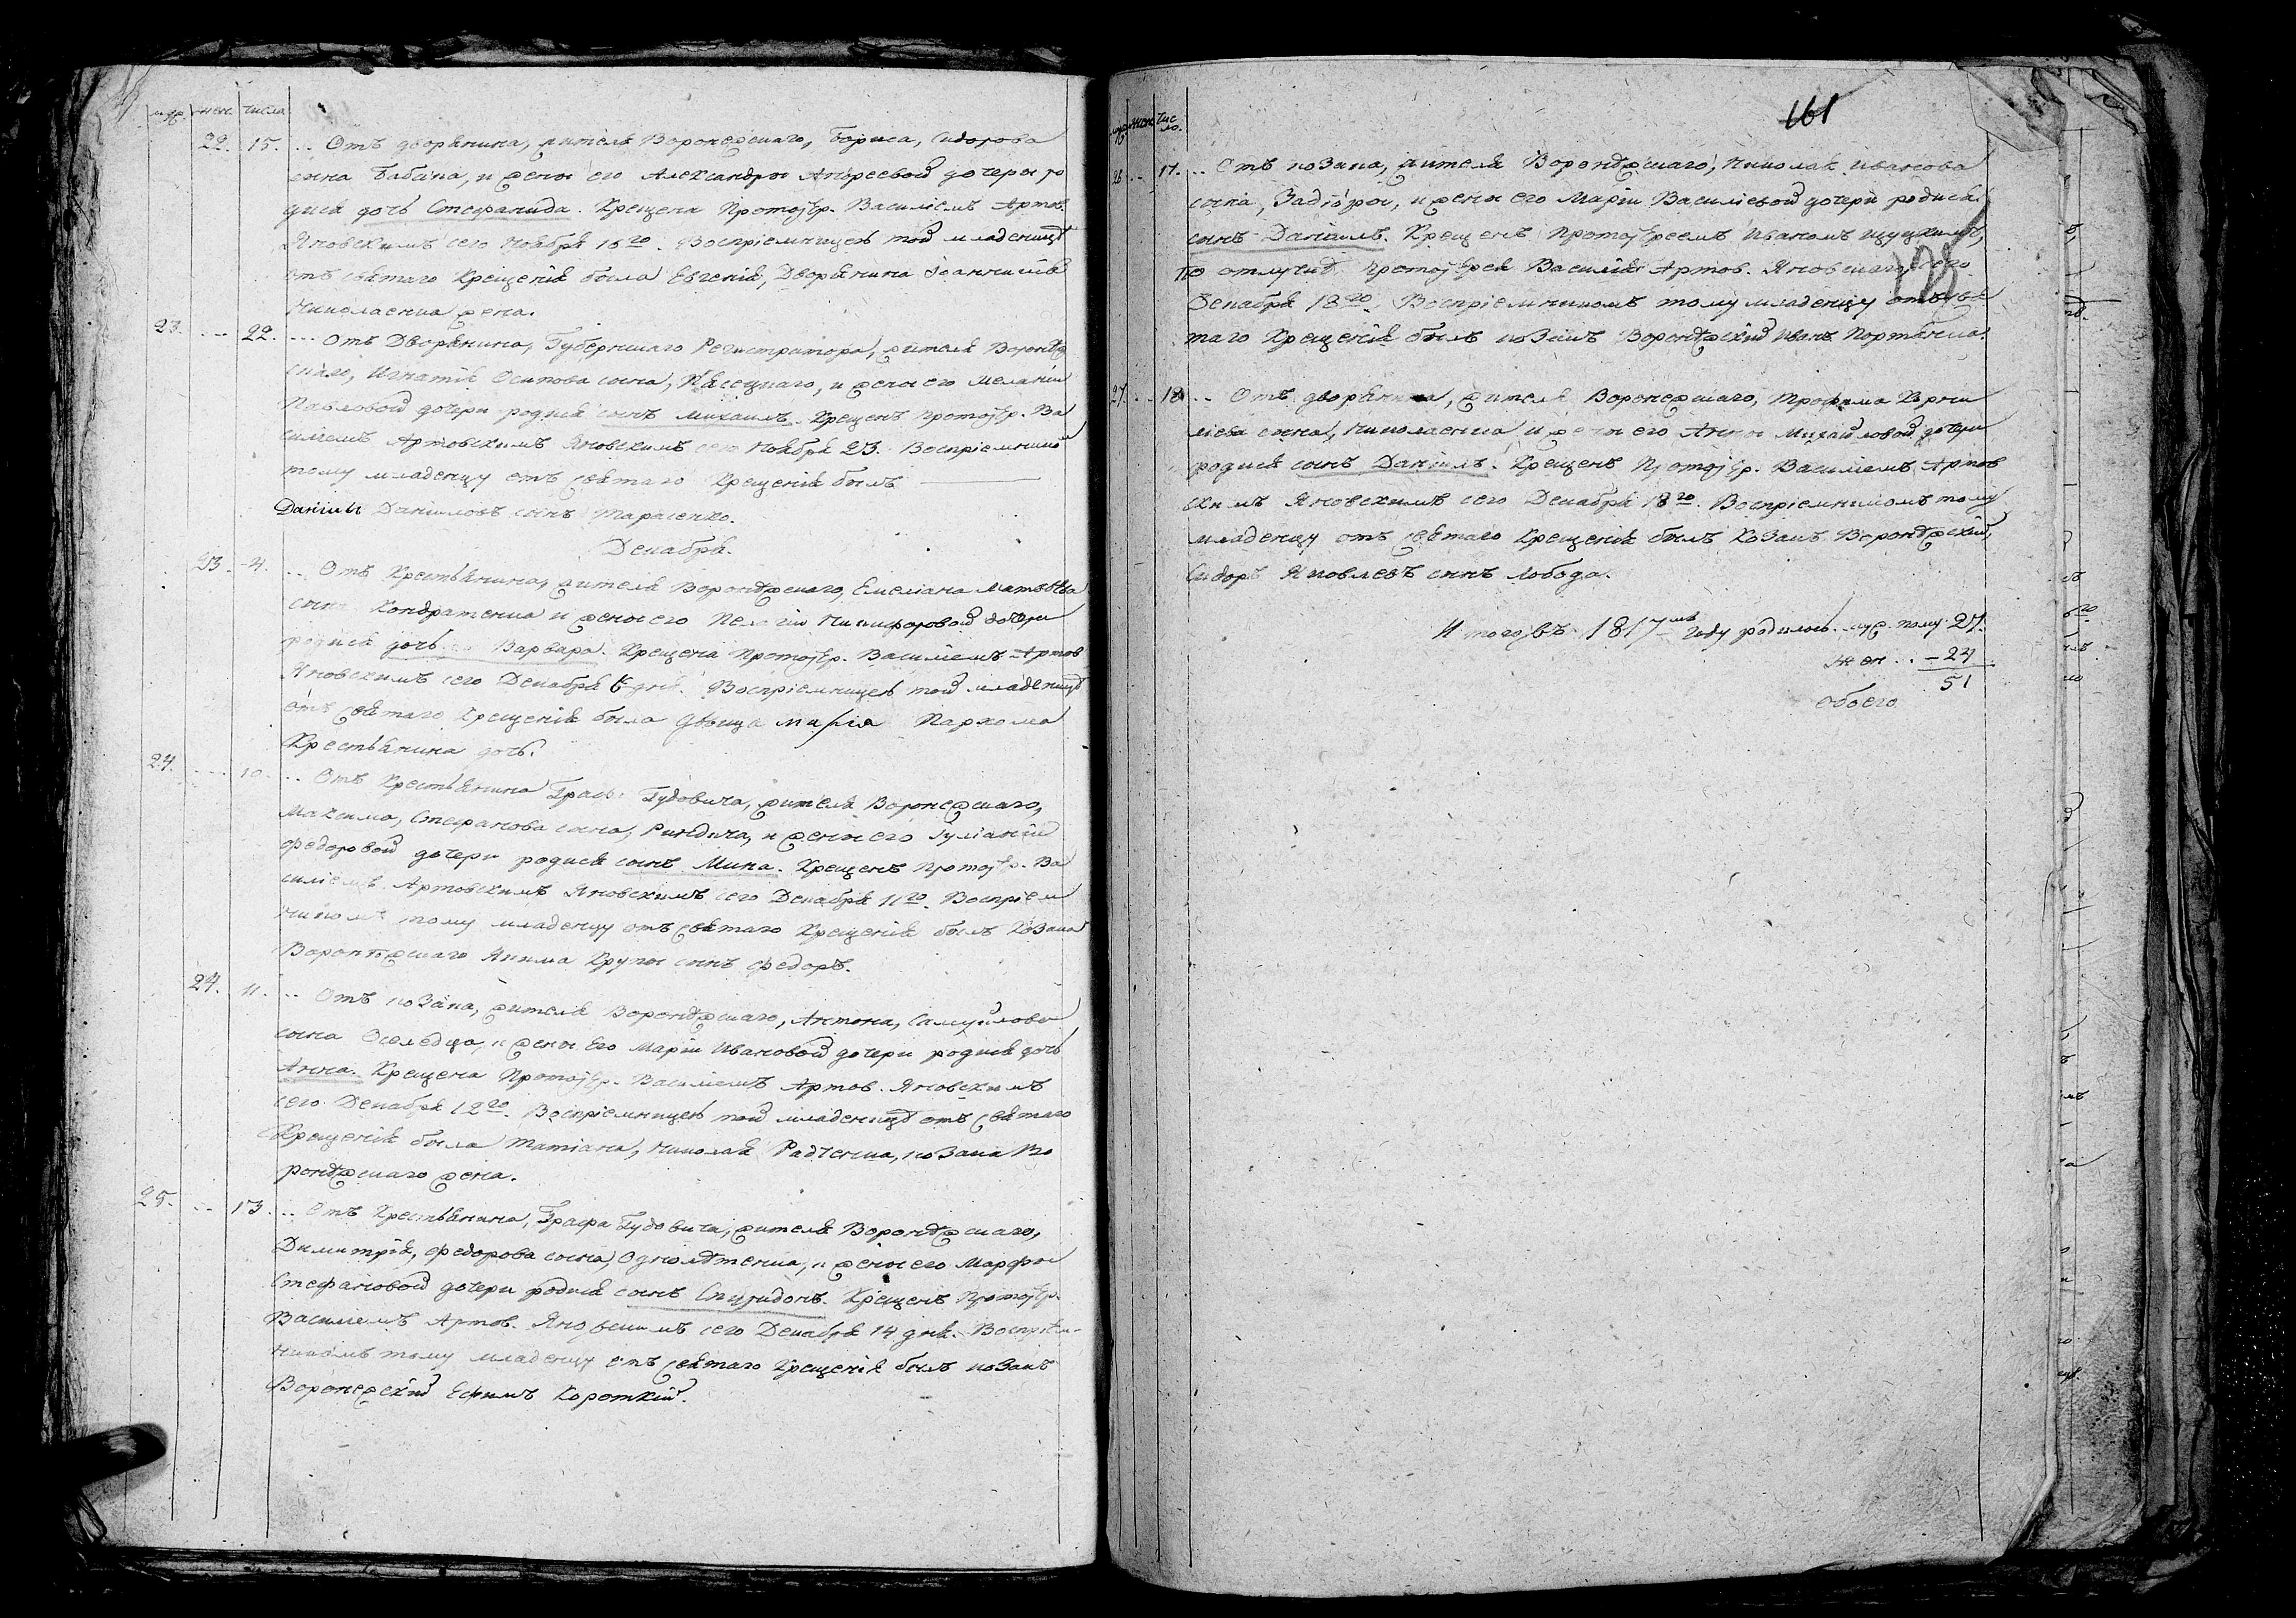 муж. жен. числа
22. 15. Отъ дворянина, жителя Воронежскаго, Бориса, Сидорова
сына Бабича, и жены его Александры Андреевой дочери ро
дися дочь Стефанида. Крещена Протоіер. Василіемъ Артов.
Яновскимъ сего Ноября 16го. Воспріемницею той младеницѣ
отъ святаго Крещенія была Евгенія, Дворянина Іоанникія
Николаенка жена.
23. 22. Отъ Дворянина, Губернскаго Регистратора, жителя Воронѣж
скаго, Игнатія Осипова сына, и жены его Меланіи
Павловой дочери родися сынъ Михаилъ. Крещенъ Протоіер. Ва
силіемъ Артовскимъ Яновскимъ сего Ноября 23. Воспріемникомъ
тому младенцу отъ святаго Крещенія былъ
Даніилъ Даніиловъ сынъ Тарасенко.
Декабря.
23. 4. Отъ Крестьянина, жителя Воронѣжскаго, Емеліана Матвѣева
сына Кондратенка и жены его Пелагіи Никифоровой дочери
родися дочь Варвара. Крещена Протоіер. Василіемъ Артов
Яновскимъ сего Декабря 6 дня. Воспріемницею той младеницѣ
отъ святаго Крещенія была дѣвица Марія Пархома
Крестьянина дочь.
24. 10. Отъ Крестьянина Графа Гудовича, жителя Воронежскаго,
Максима, Стефанова сына, Риндича, и жены его Іуліаніи
Федоровой дочери родися сынъ Мина. Крещенъ Протоіер. Ва
силіемъ Артовскимъ Яновскимъ сего Декабря 11го. Воспріем
никомъ тому младенцу отъ святаго Крещенія былъ Козака
Воронѣжскаго Якима Крупы сынъ Федоръ.
24. 11. Отъ козака, жителя Воронѣжскаго, Антона, Самуйлова
сына Оселедца, и жены Его Маріи Ивановой дочери родися дочь
Анна. Крещена Протоіер. Василіемъ Артов. Яновскимъ
сего Декабря 12го. Воспріемницею той младеницѣ отъ святаго
Крещенія была Татіана, Николая Радченка, козака Во
ронѣжскаго жена.
25. 13. Отъ Крестьянина, Графа Гудовича, жителя Воронѣжскаго,
Димитрія, Федорова сына, Однолѣтенка, и жены его Марфы
Стефановой дочери родися сынъ Спиридонъ. Крещенъ Протоіер.
Василіемъ Артов. Яновскимъ сего Декабря 14 дня. Воспріем-
никомъ тому младенцу отъ святаго Крещенія былъ козакъ
Воронежскій Ефимъ Короткій.
161
муж жен. чис
ло.
26 17. Отъ козака, жителя Воронѣжскаго, Николая Иванова
сына, и жены его Маріи Василіевой дочери родися
сынъ Даніилъ. Крещенъ Протоіереемъ Иваномъ
по отлучкѣ Протоіерея Василія Артов. Яновскаго, сего
Декабря 18го. Воспріемникомъ тому младенцу отъ свя
таго Крещенія былъ козакъ Воронѣжскій Иванъ Портянка.
27. 18. Отъ дворянина, жителя Воронежскаго, Трофима Корни
ліева сына, Николаенка и жены его Анны Михайловой дочери
родися сынъ Даніилъ. Крещенъ Протоіер. Василіемъ Артов
скимъ Яновскимъ сего Декабря 18го. Воспріемникомъ тому
младенцу отъ святаго Крещенія былъ Козакъ Воронѣжскій,
Сидоръ Яковлевъ сынъ Лобода.
Итого въ 1817мъ году родилось муж. полу. 27.
Жен. 24
51
обоего